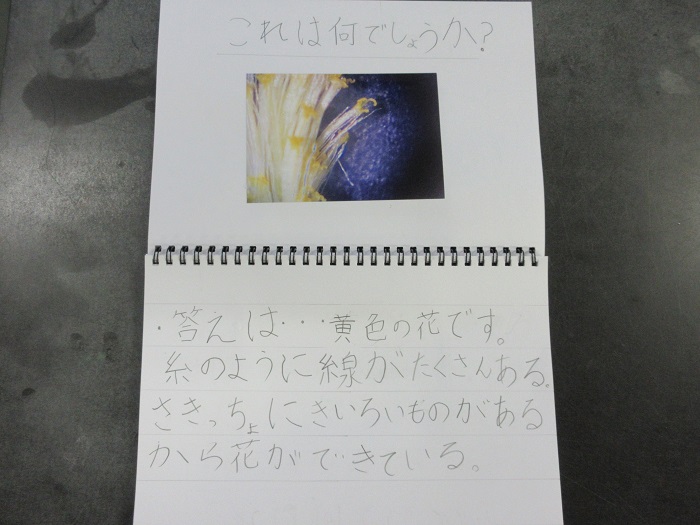 これは何でしょうか?
・答えは・・・黄色の花です。
糸のように線がたくさんある。
さきっちょにきいろいものがある
から花ができている。